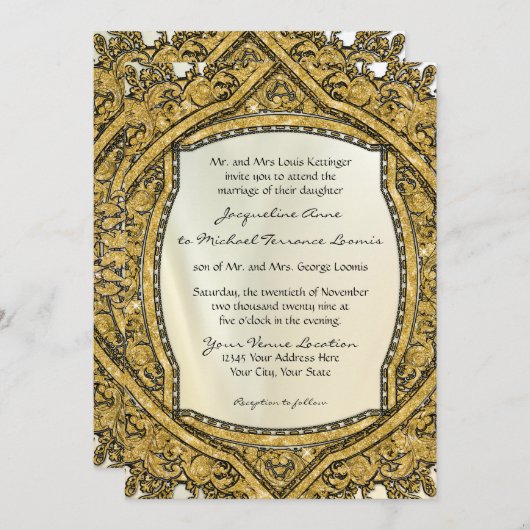 Mr. and Mrs Louis Kettinger
invite you to attend the
marriage of their daughter
Jacqueline Anne
to Michael Terrance Loomis
son of Mr. and Mrs. George Loomis
Saturday, the twentieth of November
two thousand twenty nine at
five o'clock in the evening.
Your Venue Location
12345 Your Address Here
Your City, Your State
Reception to follow